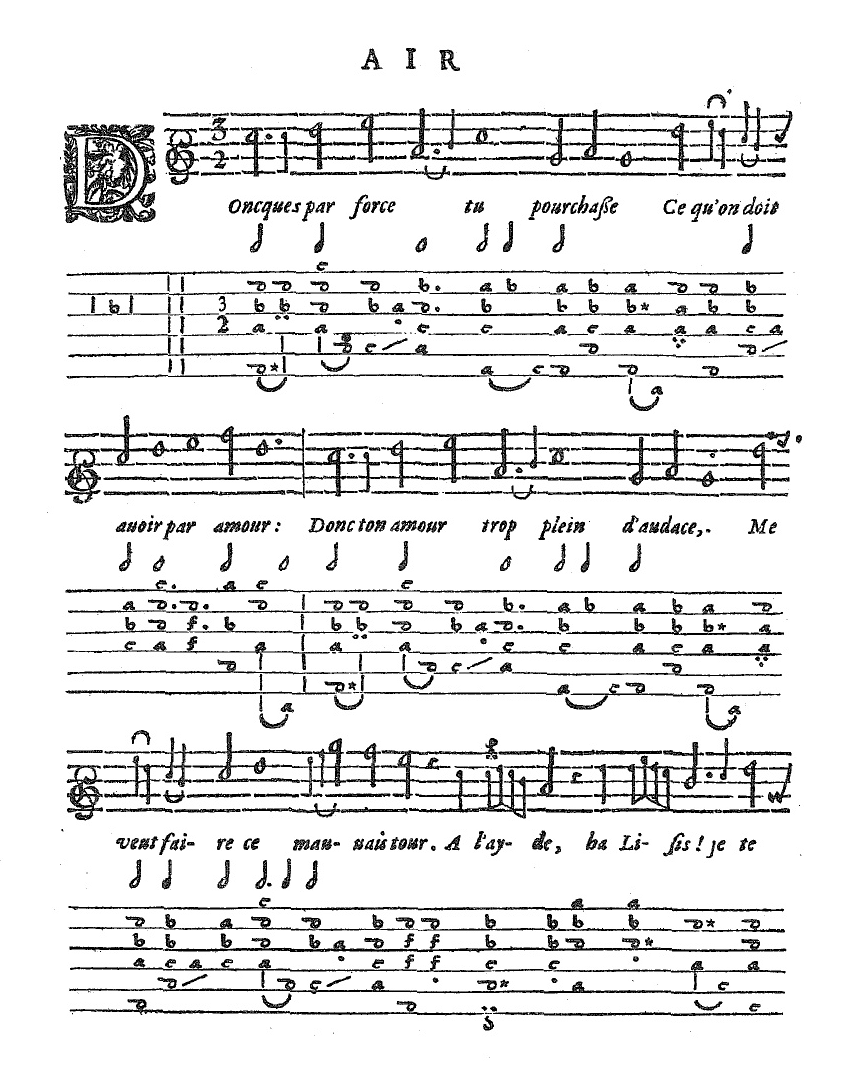 AIR
DOncques par force tu pourchaſſe Ce qu'on doit
auoir par amour : Donc ton amour trop plein d'audace,. Me
veut fai- re ce mau- uais tour. A l'ay- de, ha Li- ſis ! je te